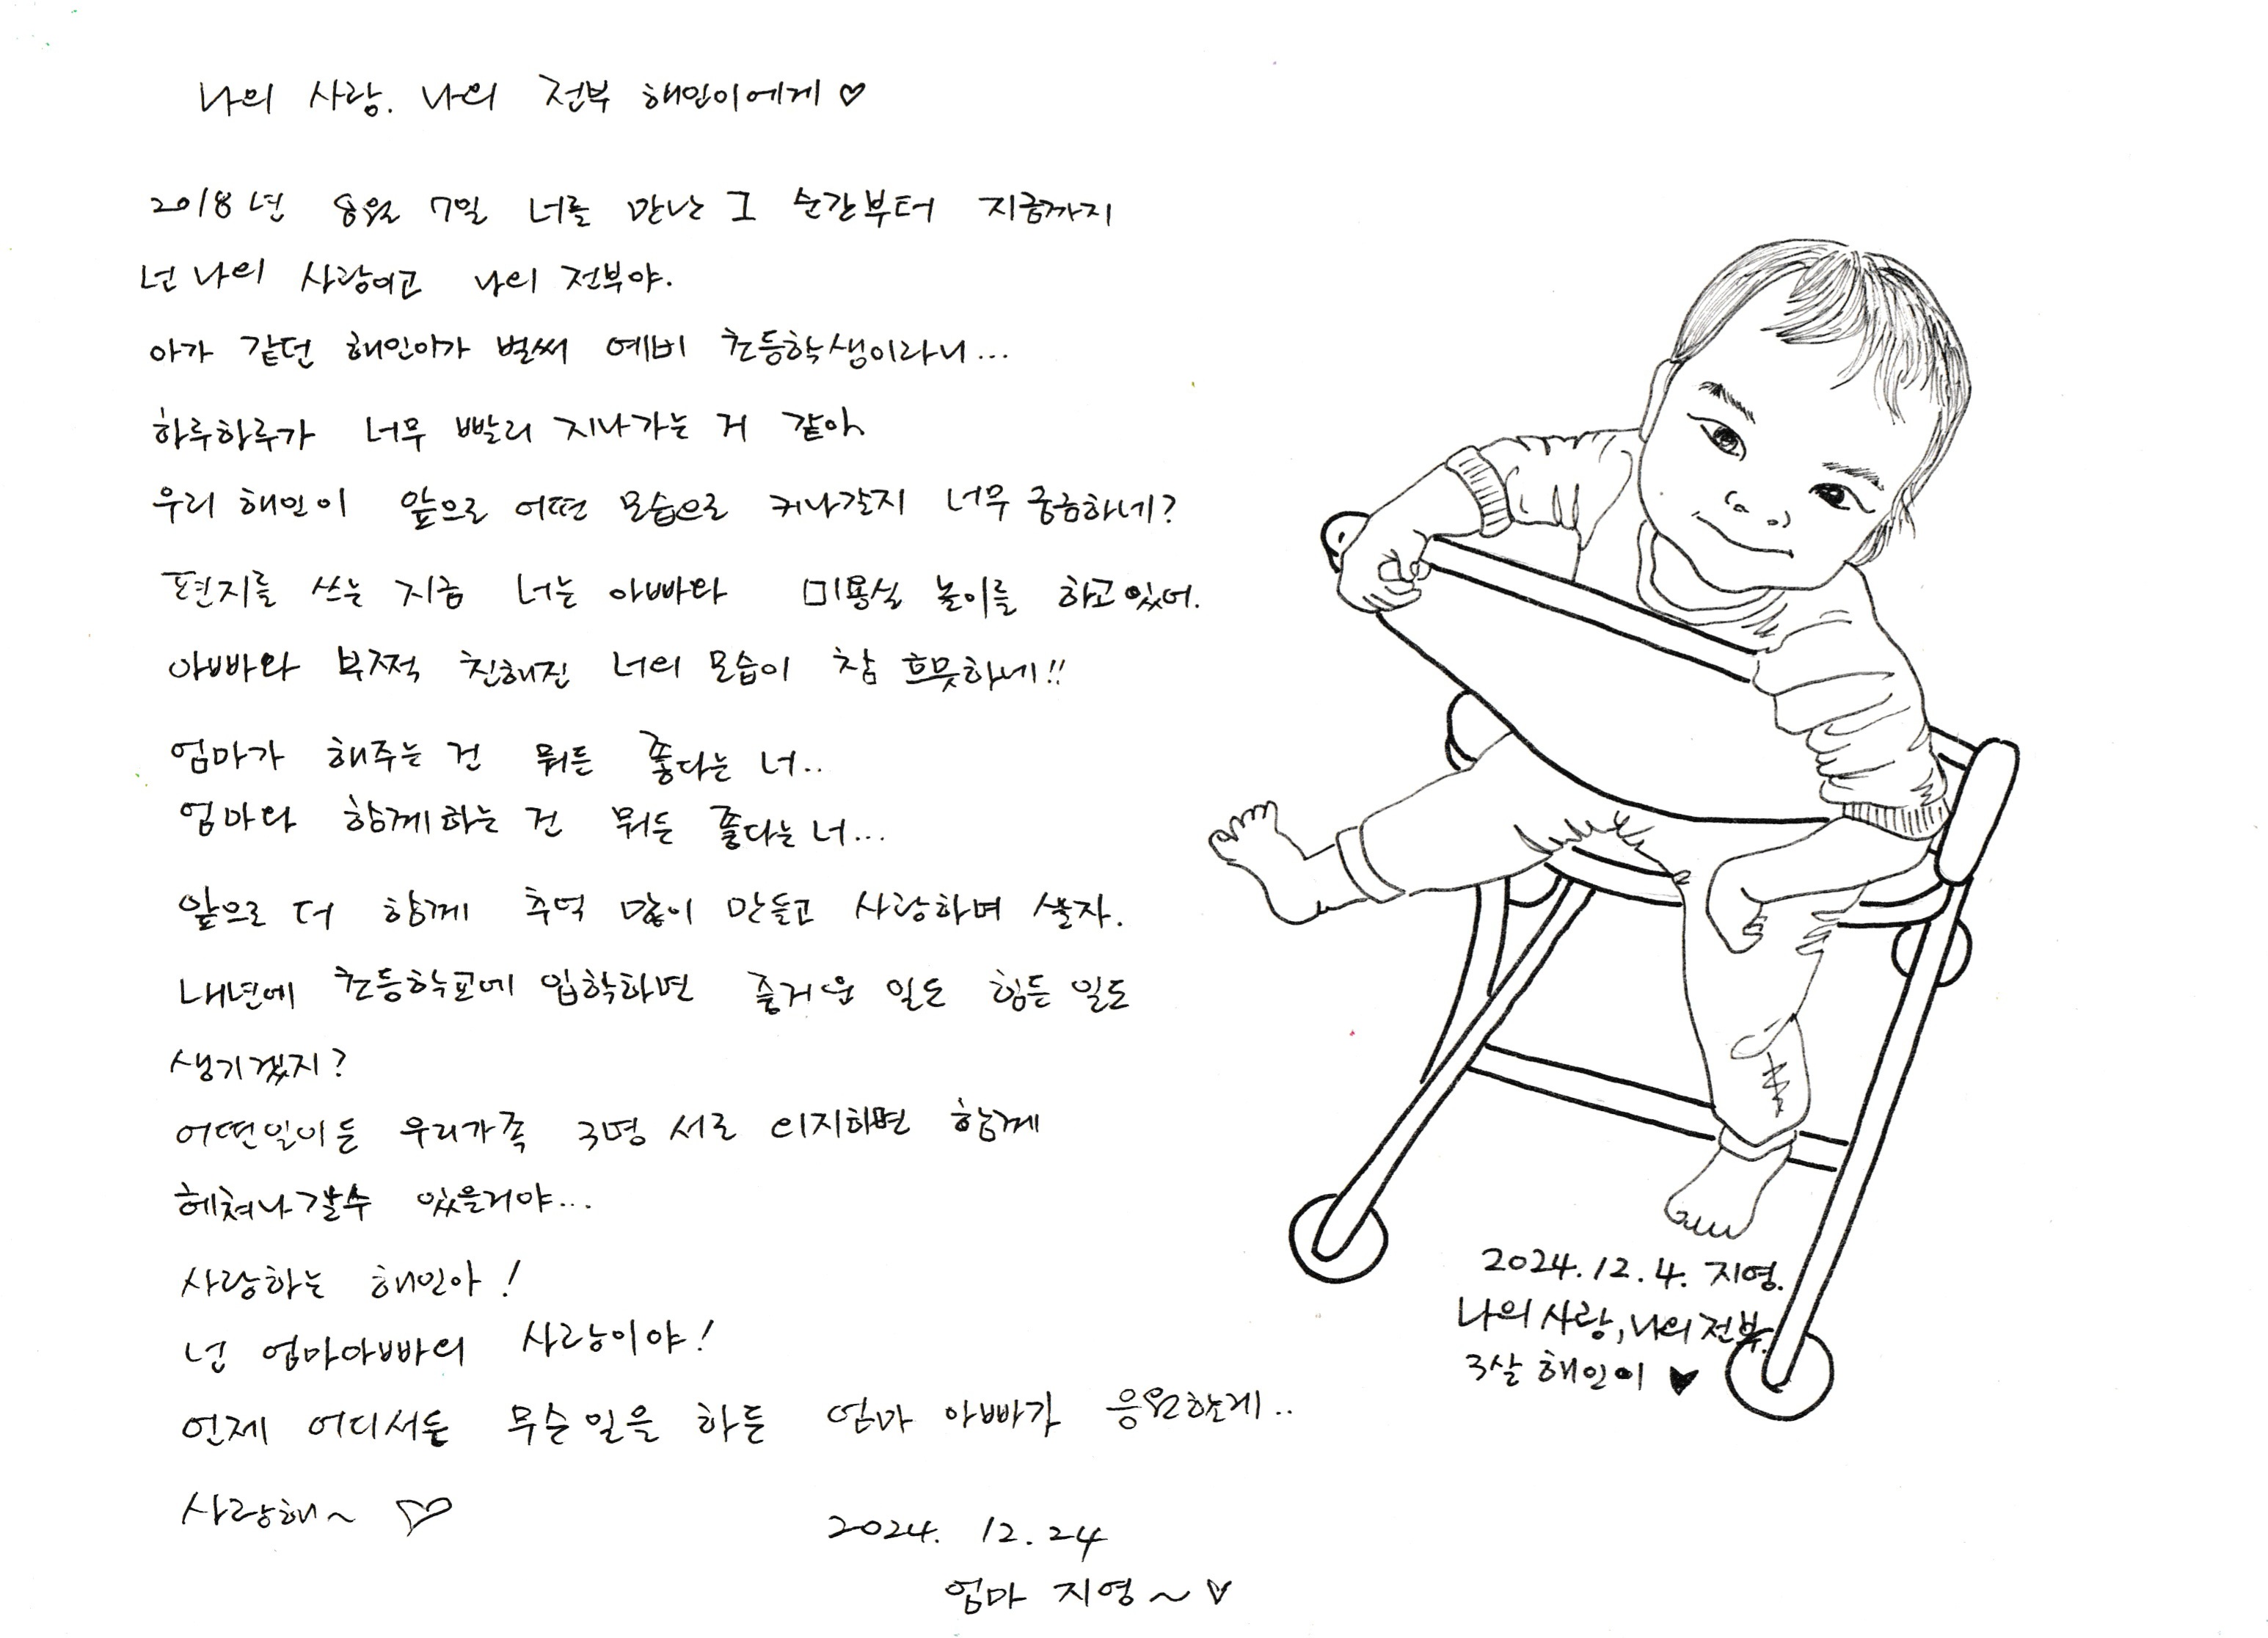 나의 사랑. 나의 전부 해인이에게 ♡
2018년 8월 7일 너를 만난 그 순간부터 지금까지
넌 나의 사랑이고 나의 전부야.
아가 같던 해인이가 벌써 예비 초등학생이라니...
하루하루가 너무 빨리 지나가는 거 같아.
우리 해인이 앞으로 어떤 모습으로 커나갈지 너무 궁금하네?
편지를 쓰는 지금 너는 아빠와 미용실 놀이를 하고있어.
아빠와 부쩍 친해진 너의 모습이 참 흐뭇하네!!
엄마가 해주는 건 뭐든 좋다는 너..
엄마와 함께하는 건 뭐든 좋다는 너...
앞으로 더 함께 추억 많이 만들고 사랑하며 살자.
내년에 초등학교에 입학하면 즐거운 일도 힘든 일도
생기겠지?
어떤일이든 우리가족 3명 서로 의지하면 함께
헤쳐나갈수 있을거야...
사랑하는 해인아!
넌 엄마아빠의 사랑이야!
언제 어디서든 무슨일을 하든 엄마 아빠가 응원할게..
사랑해~ ♡
2024. 12. 24
엄마 지영~♡
2024.12.4. 지영.
나의 사랑, 나의 전부.
3살 해인이 ♥